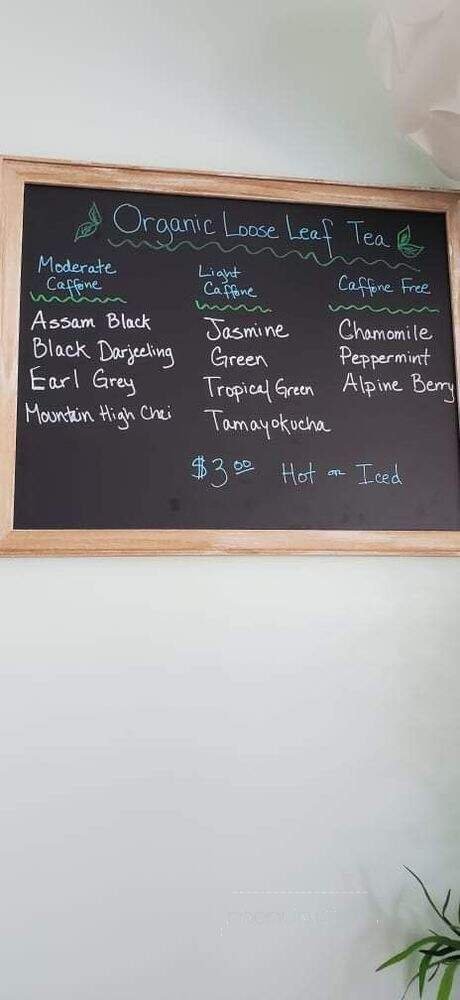 Organic Loose Leaf Tea
Moderate
Caffeine
Assam Black
Black Darjeeling
Earl Grey
Mountain High Chai
Light
Caffeine
Jasmine
Green
Tropical Green
Tamayokucha
Caffeine Free
Chamomile
Peppermint
Alpine Berry
$3.00 Hot or Iced